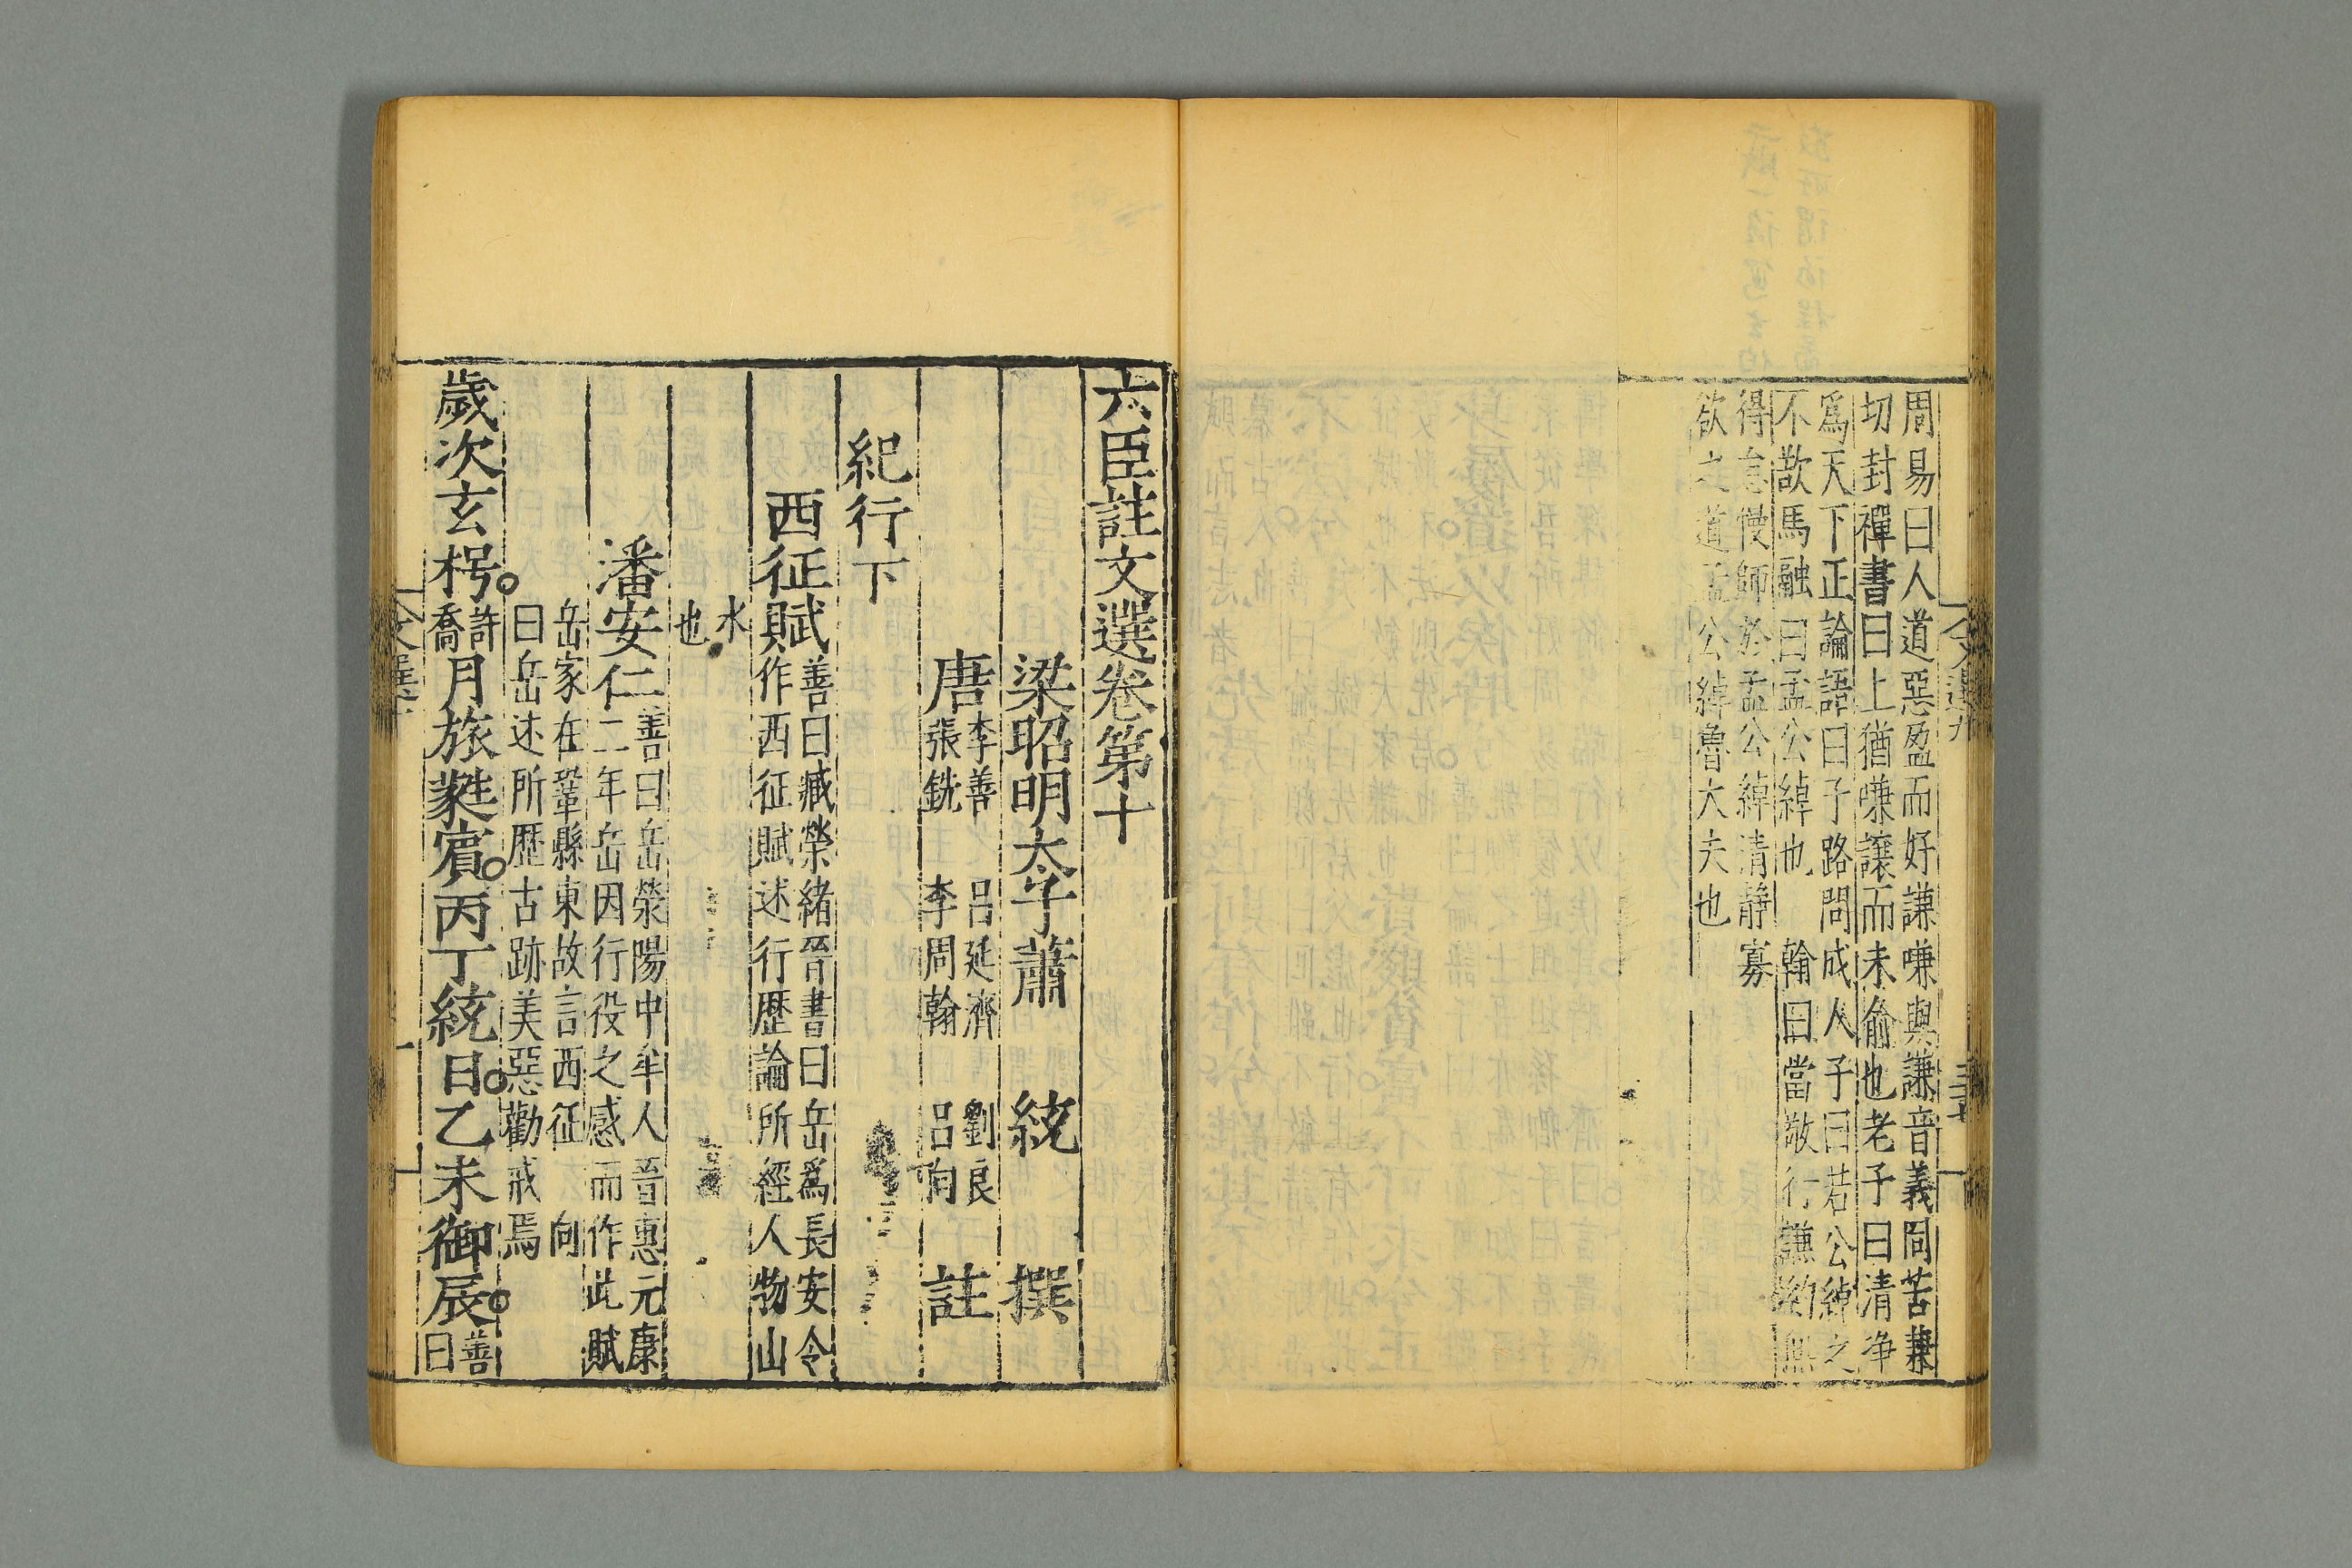 周易曰人道惡盈而好謙嗛與謙音義同苦蒹
切封禪書曰上猶嗛讓而未俞也老子曰清净
爲天下正論語曰子路問成人子曰若公綽之
不欲馬融曰孟公綽也 翰曰當敬行謙約無
得怠慢師於孟公綽清靜寡
欲之道孟公綽魯大夫也
六臣註文選卷第十
梁昭明太子蕭 統 撰
唐 李善 呂延濟 劉良
張銑 李周翰 呂向 註
紀行下
西征賦 善曰臧榮緒晉書曰岳爲長安令
作西征賦述行歷論所經人物山
水
也
潘安仁 善曰岳滎陽中牟人晉惠元康
二年岳因行役之感而作此賦
岳家在鞏縣東故言西征 向
曰岳述所歷古跡美惡勸戒焉
歲次玄枵 許
喬 月旅蕤賓丙丁統日乙未御辰 善
曰